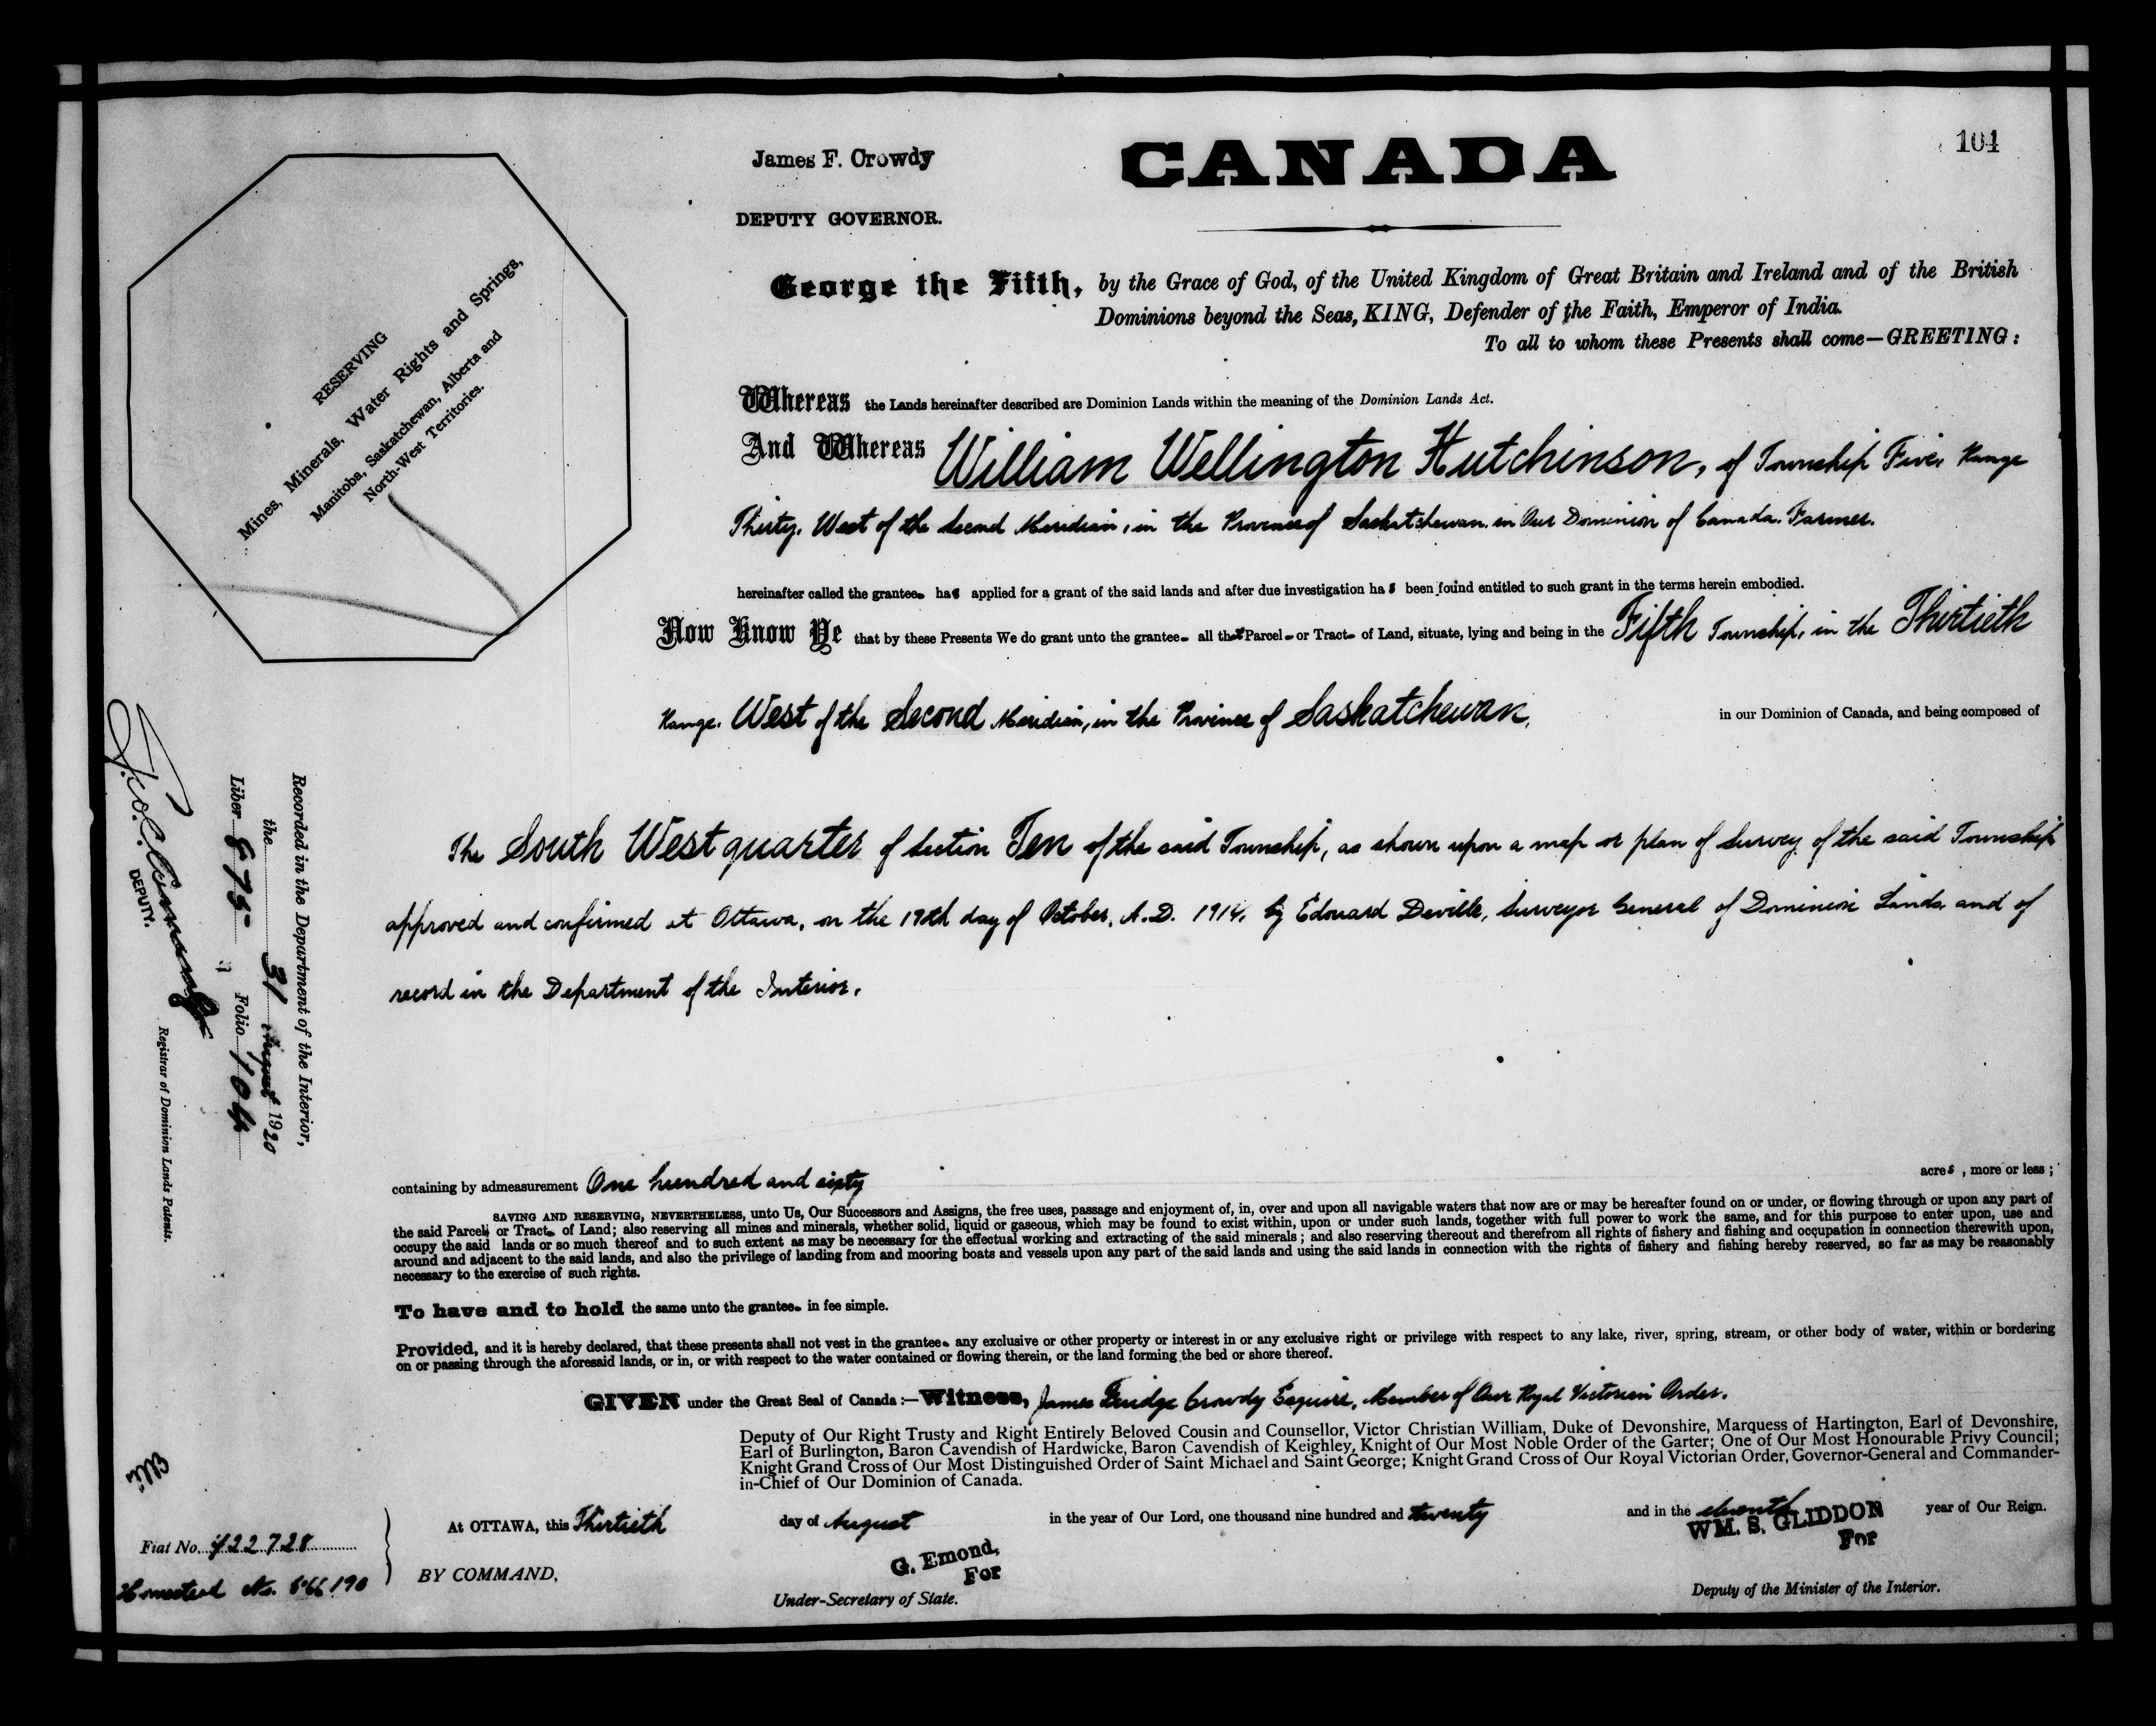 104
James F. Crowdy
DEPUTY GOVERNOR.
CANADA
George the Fifth, by the Grace of God, of the United Kingdom of Great Britain and Ireland and of the British
Dominions beyond the Seas, KING, Defender of the Faith, Emperor of India.
To all to whom these Presents shall come—GREETING:
RESERVING
Mines, Minerals, Water Rights and Springs,
Manitoba, Saskatchewan, Alberta and
North-West Territories.
Whereas the Lands hereinafter described are Dominion Lands within the meaning of the Dominion Lands Act.
And Whereas William Wellington Hutchinson, of Township Five, Range
Thirty, West of the Second Meridian, in the Province of Saskatchewan, in Our Dominion of Canada, Farmer.
hereinafter called the grantee has applied for a grant of the said lands and after due investigation has been found entitled to such grant in the terms herein embodied.
Now Know Ye that by these Presents We do grant unto the grantee all that Parcel or Tract of Land, situate, lying and being in the Fifth Township, in the Thirtieth
Range, West of the Second Meridian, in the Province of Saskatchewan, in our Dominion of Canada, and being composed of
The South West quarter of Section Ten of the said Township, as shown upon a map or plan of survey of the said Township
approved and confirmed at Ottawa, on the 19th day of October, A.D. 1914, by Edouard Deville, Surveyor General of Dominion Lands, and of
record in the Department of the Interior.
Recorded in the Department of the Interior,
the 31 August 1920
Liber 875 Folio 104
DEPUTY.
Registrar of Dominion Lands Patents.
containing by admeasurement One hundred and sixty acres, more or less;
SAVING AND RESERVING, NEVERTHELESS, unto Us, Our Successors and Assigns, the free uses, passage and enjoyment of, in, over and upon all navigable waters that now are or may be hereafter found on or under, or flowing through or upon any part of
the said Parcel or Tract of Land; also reserving all mines and minerals, whether solid, liquid or gaseous, which may be found to exist within, upon or under such lands, together with full power to work the same, and for this purpose to enter upon, use and
occupy the said lands or so much thereof and to such extent as may be necessary for the effectual working and extracting of the said minerals; and also reserving thereout and therefrom all rights of fishery and fishing and occupation in connection therewith upon,
around and adjacent to the said lands, and also the privilege of landing from and mooring boats and vessels upon any part of the said lands and using the said lands in connection with the rights of fishery and fishing hereby reserved, so far as may be reasonably
necessary to the exercise of such rights.
To have and to hold the same unto the grantee in fee simple.
Provided, and it is hereby declared, that these presents shall not vest in the grantee any exclusive or other property or interest in or any exclusive right or privilege with respect to any lake, river, spring, stream, or other body of water, within or bordering
on or passing through the aforesaid lands, or in, or with respect to the water contained or flowing therein, or the land forming the bed or shore thereof.
GIVEN under the Great Seal of Canada:—Witness, James Fluidge Crowdy Esquire, Member of Our Royal Victorian Order.
Deputy of Our Right Trusty and Right Entirely Beloved Cousin and Counsellor, Victor Christian William, Duke of Devonshire, Marquess of Hartington, Earl of Devonshire,
Earl of Burlington, Baron Cavendish of Hardwicke, Baron Cavendish of Keighley, Knight of Our Most Noble Order of the Garter; One of Our Most Honourable Privy Council;
Knight Grand Cross of Our Most Distinguished Order of Saint Michael and Saint George; Knight Grand Cross of Our Royal Victorian Order, Governor-General and Commander-
in-Chief of Our Dominion of Canada.
At OTTAWA, this Thirtieth day of August in the year of Our Lord, one thousand nine hundred and twenty and in the eleventh year of Our Reign.
WM. S. GLIDDON
For
Deputy of the Minister of the Interior.
BY COMMAND,
G. Emond,
For
Under-Secretary of State.
Ellis
Fiat No. 422728
Homestead No.